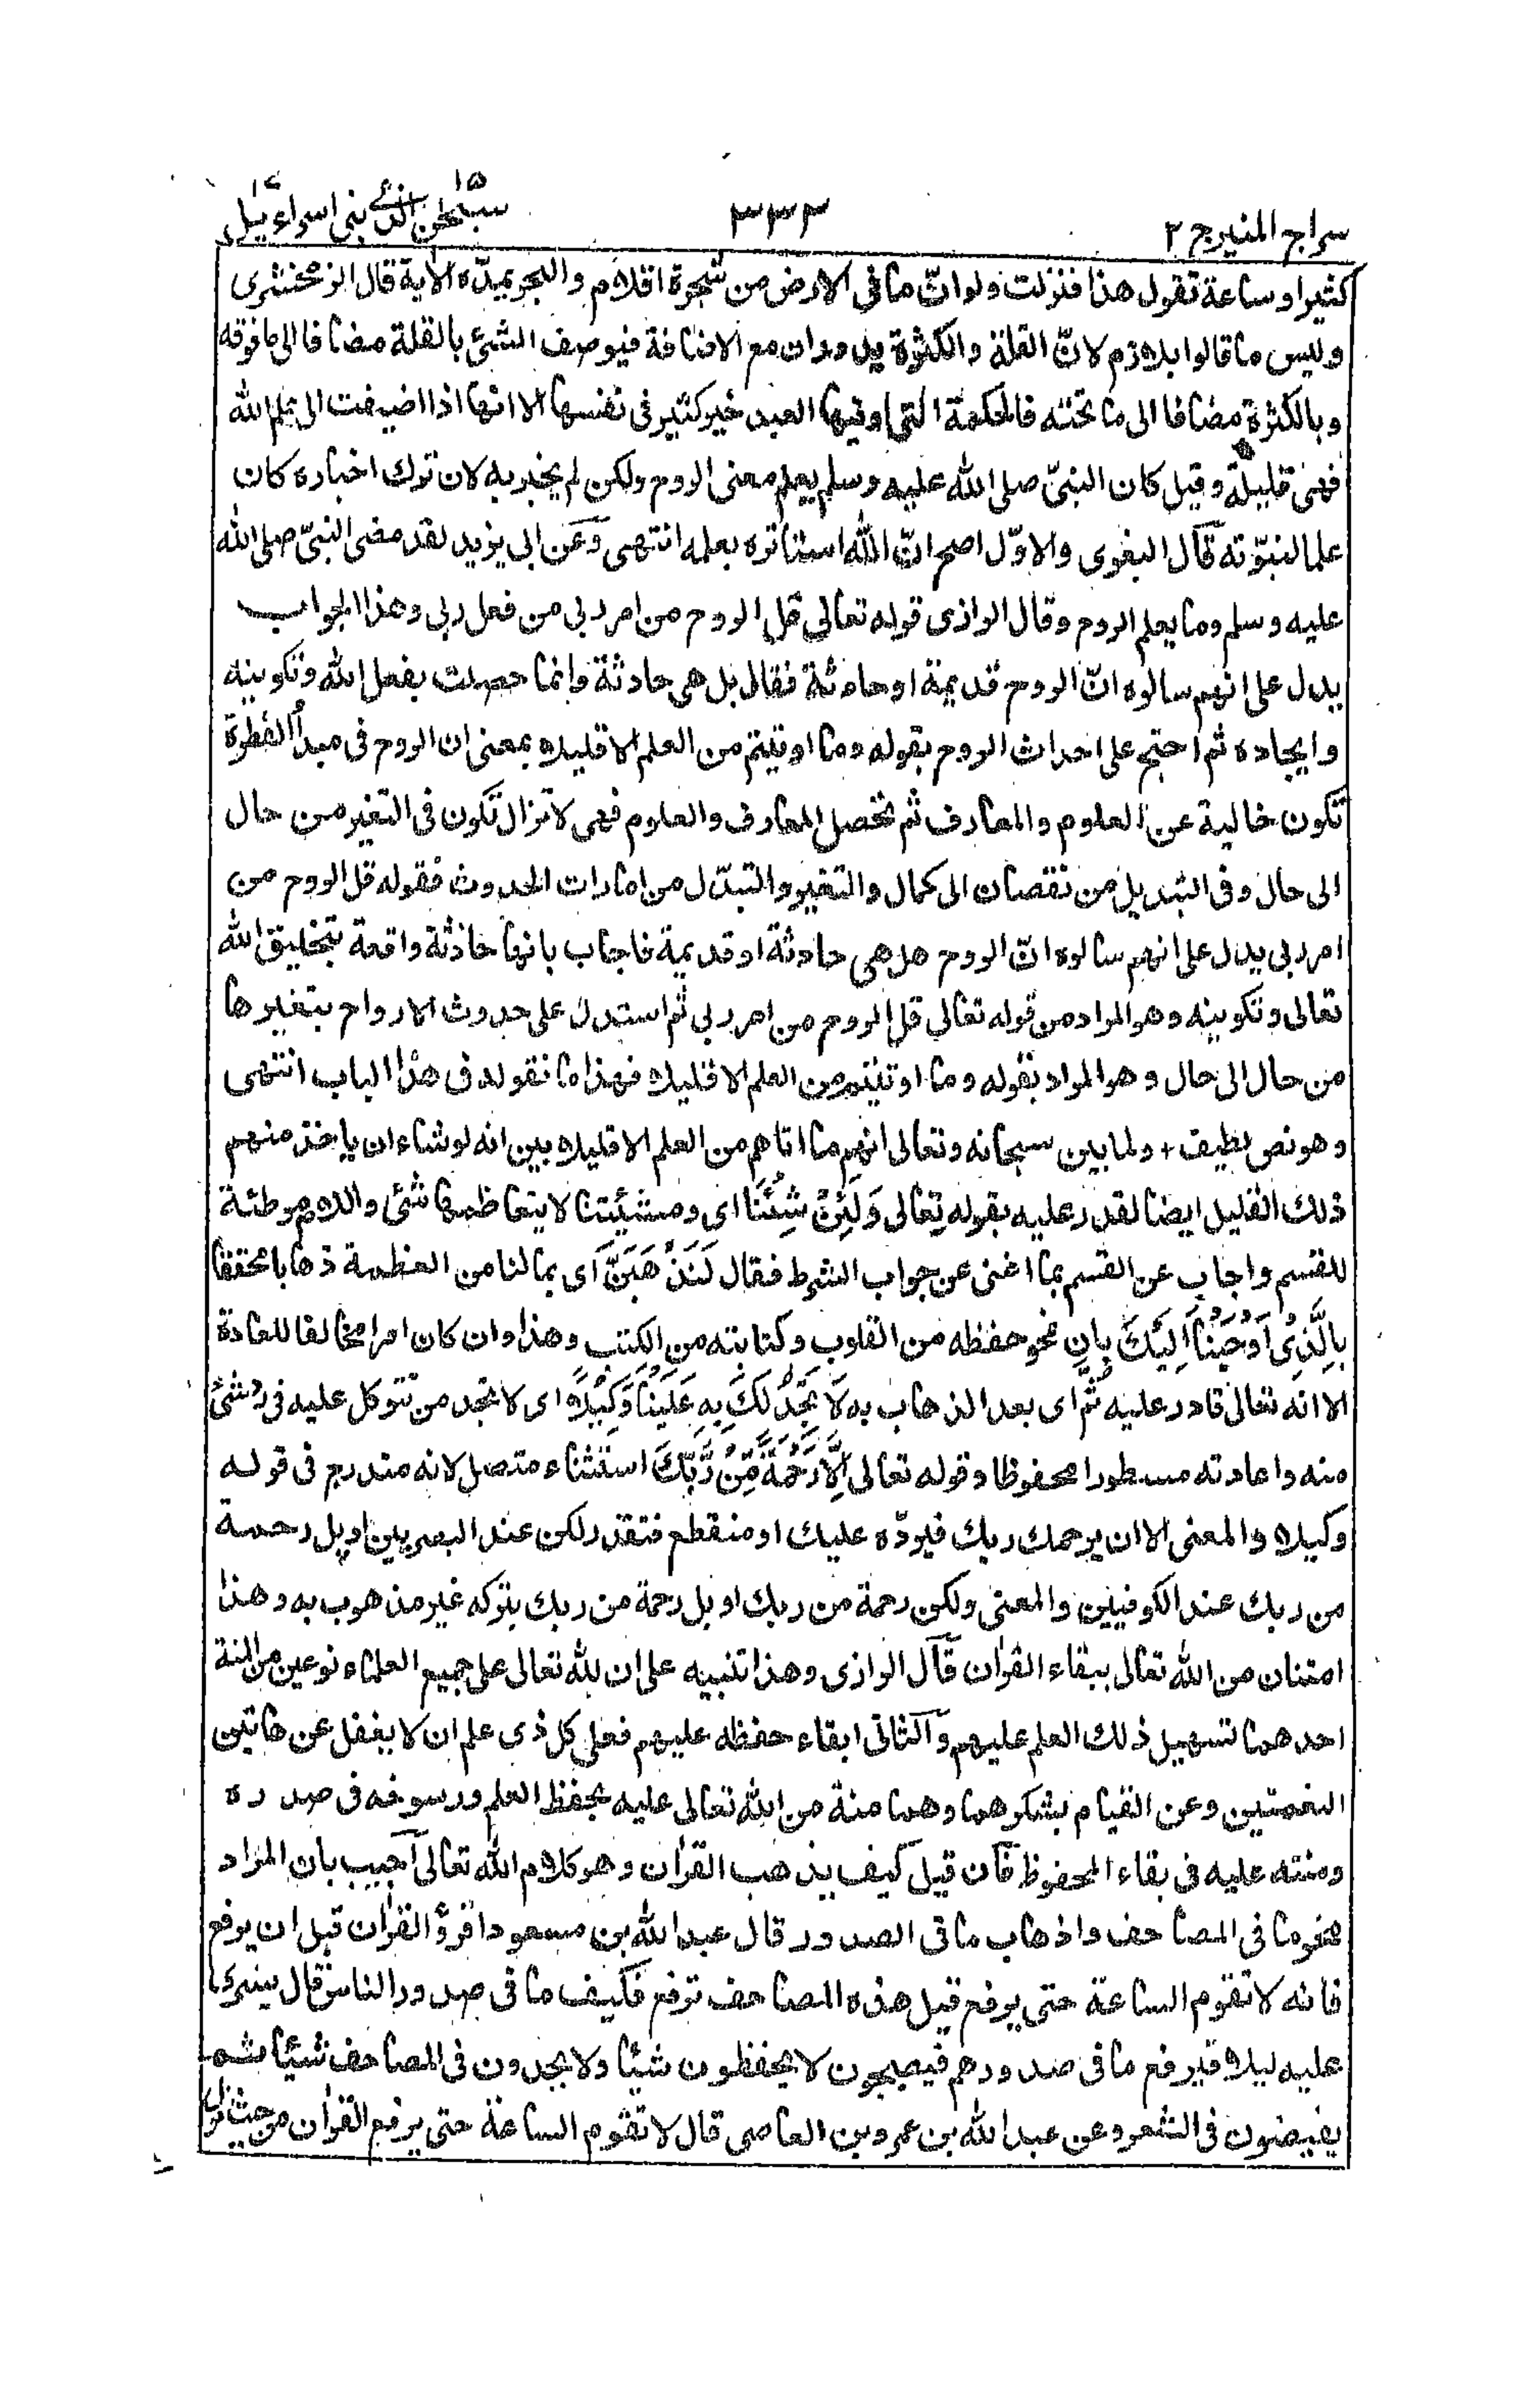 سراج المنير ج ٢
٣٣٣
سبحٰن الذی ١٥ بنی اسراءیل ١٧
كثيرا وساعة تقول هذا فنزلت ولو انّ ما فی الارض من شجرة اقلام والبحر يمدّه الاٰية قال الزمخشری
وليس ما قالوا بلازم لانّ القلة والكثرة يدوران مع الاضافة فيوصف الشئ بالقلة مضافا الی ما فوقه
وبالكثرة مضافا الی ما تحته فالحكمة التی اوتيها العبد خير كثير فی نفسها الا انها اذا اضيفت الی علم الله
فهی قليلة وقيل كان النبیّ صلی الله عليه وسلم يعلم معنی الروح ولكن لم يخبر به لان ترك اخباره كان
علما لنبوّته قال البغوی والاوّل اصح انّ الله استأثره بعلمه انتهی وعن ابی يزيد لقد مضی النبیّ صلی الله
عليه وسلم وما يعلم الروح وقال الرازی قوله تعالی قل الروح من امر ربی من فعل ربی وهذا الجواب
يدل علی انهم سالوه انّ الروح قديمة او حادثة فقال بل هی حادثة وانما حصلت بفعل الله وتكوينه
وايجاده ثم احتج علی احداث الروح بقوله وما اوتيتم من العلم الا قليلا بمعنی ان الروح فی مبدأ الفطرة
تكون خالية عن العلوم والمعارف ثم تحصل المعارف والعلوم فهی لا تزال تكون فی التغير من حال
الی حال وفی التبديل من نقصان الی كمال والتغير والتبدّل من امارات الحدوث فقوله قل الروح من
امر ربی يدل علی انهم سالوه انّ الروح هل هی حادثة او قديمة فاجاب بانها حادثة واقعة بتخليق الله
تعالی وتكوينه وهو المراد من قوله تعالی قل الروح من امر ربی ثم استدل علی حدوث الارواح بتغيرها
من حال الی حال وهو المراد بقوله وما اوتيتم من العلم الا قليلا فهذا ما نقوله فی هذا الباب انتهی
وهو نص لطيف + ولما بين سبحانه وتعالی انهم ما اتاهم من العلم الا قليلا بين انه لو شاء ان ياخذ منهم
ذلك القليل ايضا لقدر عليه بقوله تعالی وَلَئِنْ شِئْنَا ای ومشيئتنا لا يتعاظمها شئ واللام موطئة
للقسم واجاب عن القسم بما اغنی عن جواب الشرط فقال لَنَذْهَبَنَّ ای بما لنا من العظمة ذهابا محققا
بِالَّذِیْ اَوْحَيْنَا اِلَيْكَ بان نمحو حفظه من القلوب وكتابته من الكتب وهذا وان كان امرا مخالفا للعادة
الا انه تعالی قادر عليه ثُمَّ ای بعد الذهاب به لَا تَجِدُ لَكَ بِهٖ عَلَيْنَا وَكِيْلًا ای لا تجد من تتوكل عليه فی رد شئ
منه واعادته مسطورا محفوظا وقوله تعالی اِلَّا رَحْمَةً مِّنْ رَّبِّكَ استثناء متصل لانه مندرج فی قوله
وكيلا والمعنی الا ان يرحمك ربك فيردّه عليك او منقطع فتقدر لكن عند البصريين او بل رحمة
من ربك عند الكوفيين والمعنی ولكن رحمة من ربك او بل رحمة من ربك بتركه غير مذهوب به وهذا
امتنان من الله تعالی ببقاء القراٰن قال الرازی وهذا تنبيه علی ان لله تعالی علی جميع العلماء نوعين من المنة
احدهما تسهيل ذلك العلم عليهم والثانی ابقاء حفظه عليهم فعلی كل ذی علم ان لا يغفل عن هاتين
النعمتين وعن القيام بشكرهما وهما منة من الله تعالی عليه بحفظ العلم ورسوخه فی صدره
ومنته عليه فی بقاء المحفوظ فان قيل كيف يذهب القراٰن وهو كلام الله تعالی اجيب بان المراد
محو ما فی المصاحف واذهاب ما فی الصدور قال عبد الله بن مسعود اقرؤا القراٰن قبل ان يرفع
فانه لا تقوم الساعة حتی يرفع قيل هذه المصاحف ترفع فكيف ما فی صدور الناس قال يسری
عليه ليلا فيرفع ما فی صدورهم فيصبحون لا يحفظون شيئا ولا يجدون فی المصاحف شيئا ثم
يفيضون فی الشعر وعن عبد الله بن عمرو بن العاصی قال لا تقوم الساعة حتی يرفع القراٰن من حيث نزل